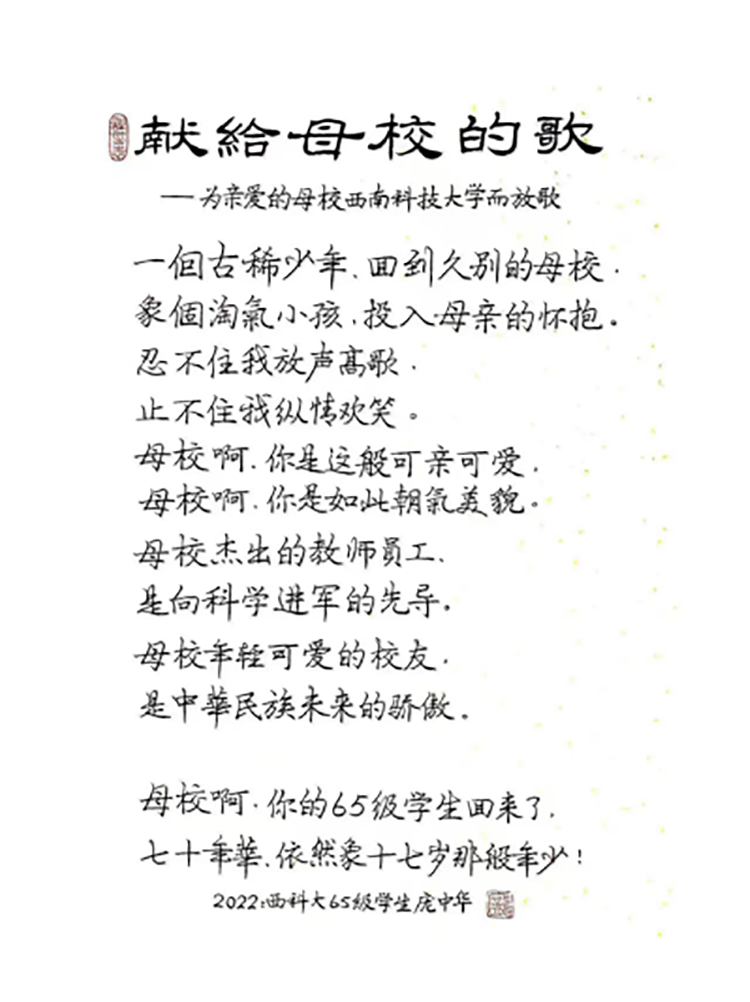 献給母校的歌
—为亲爱的母校西南科技大学而放歌
一個古稀少年、回到久别的母校.
象個淘氣小孩,投入母亲的怀抱。
忍不住我放声高歌.
止不住我纵情欢笑。
母校啊.你是这般可亲可爱.
母校啊.你是如此朝氣美貌。
母校杰出的教师員工.
是向科学进军的先导。
母校年轻可爱的校友.
是中華民族未来的骄傲。
母校啊.你的65级学生回来了.
七十年華.依然象十七岁那般年少!
2022:西科大65级学生庞中华